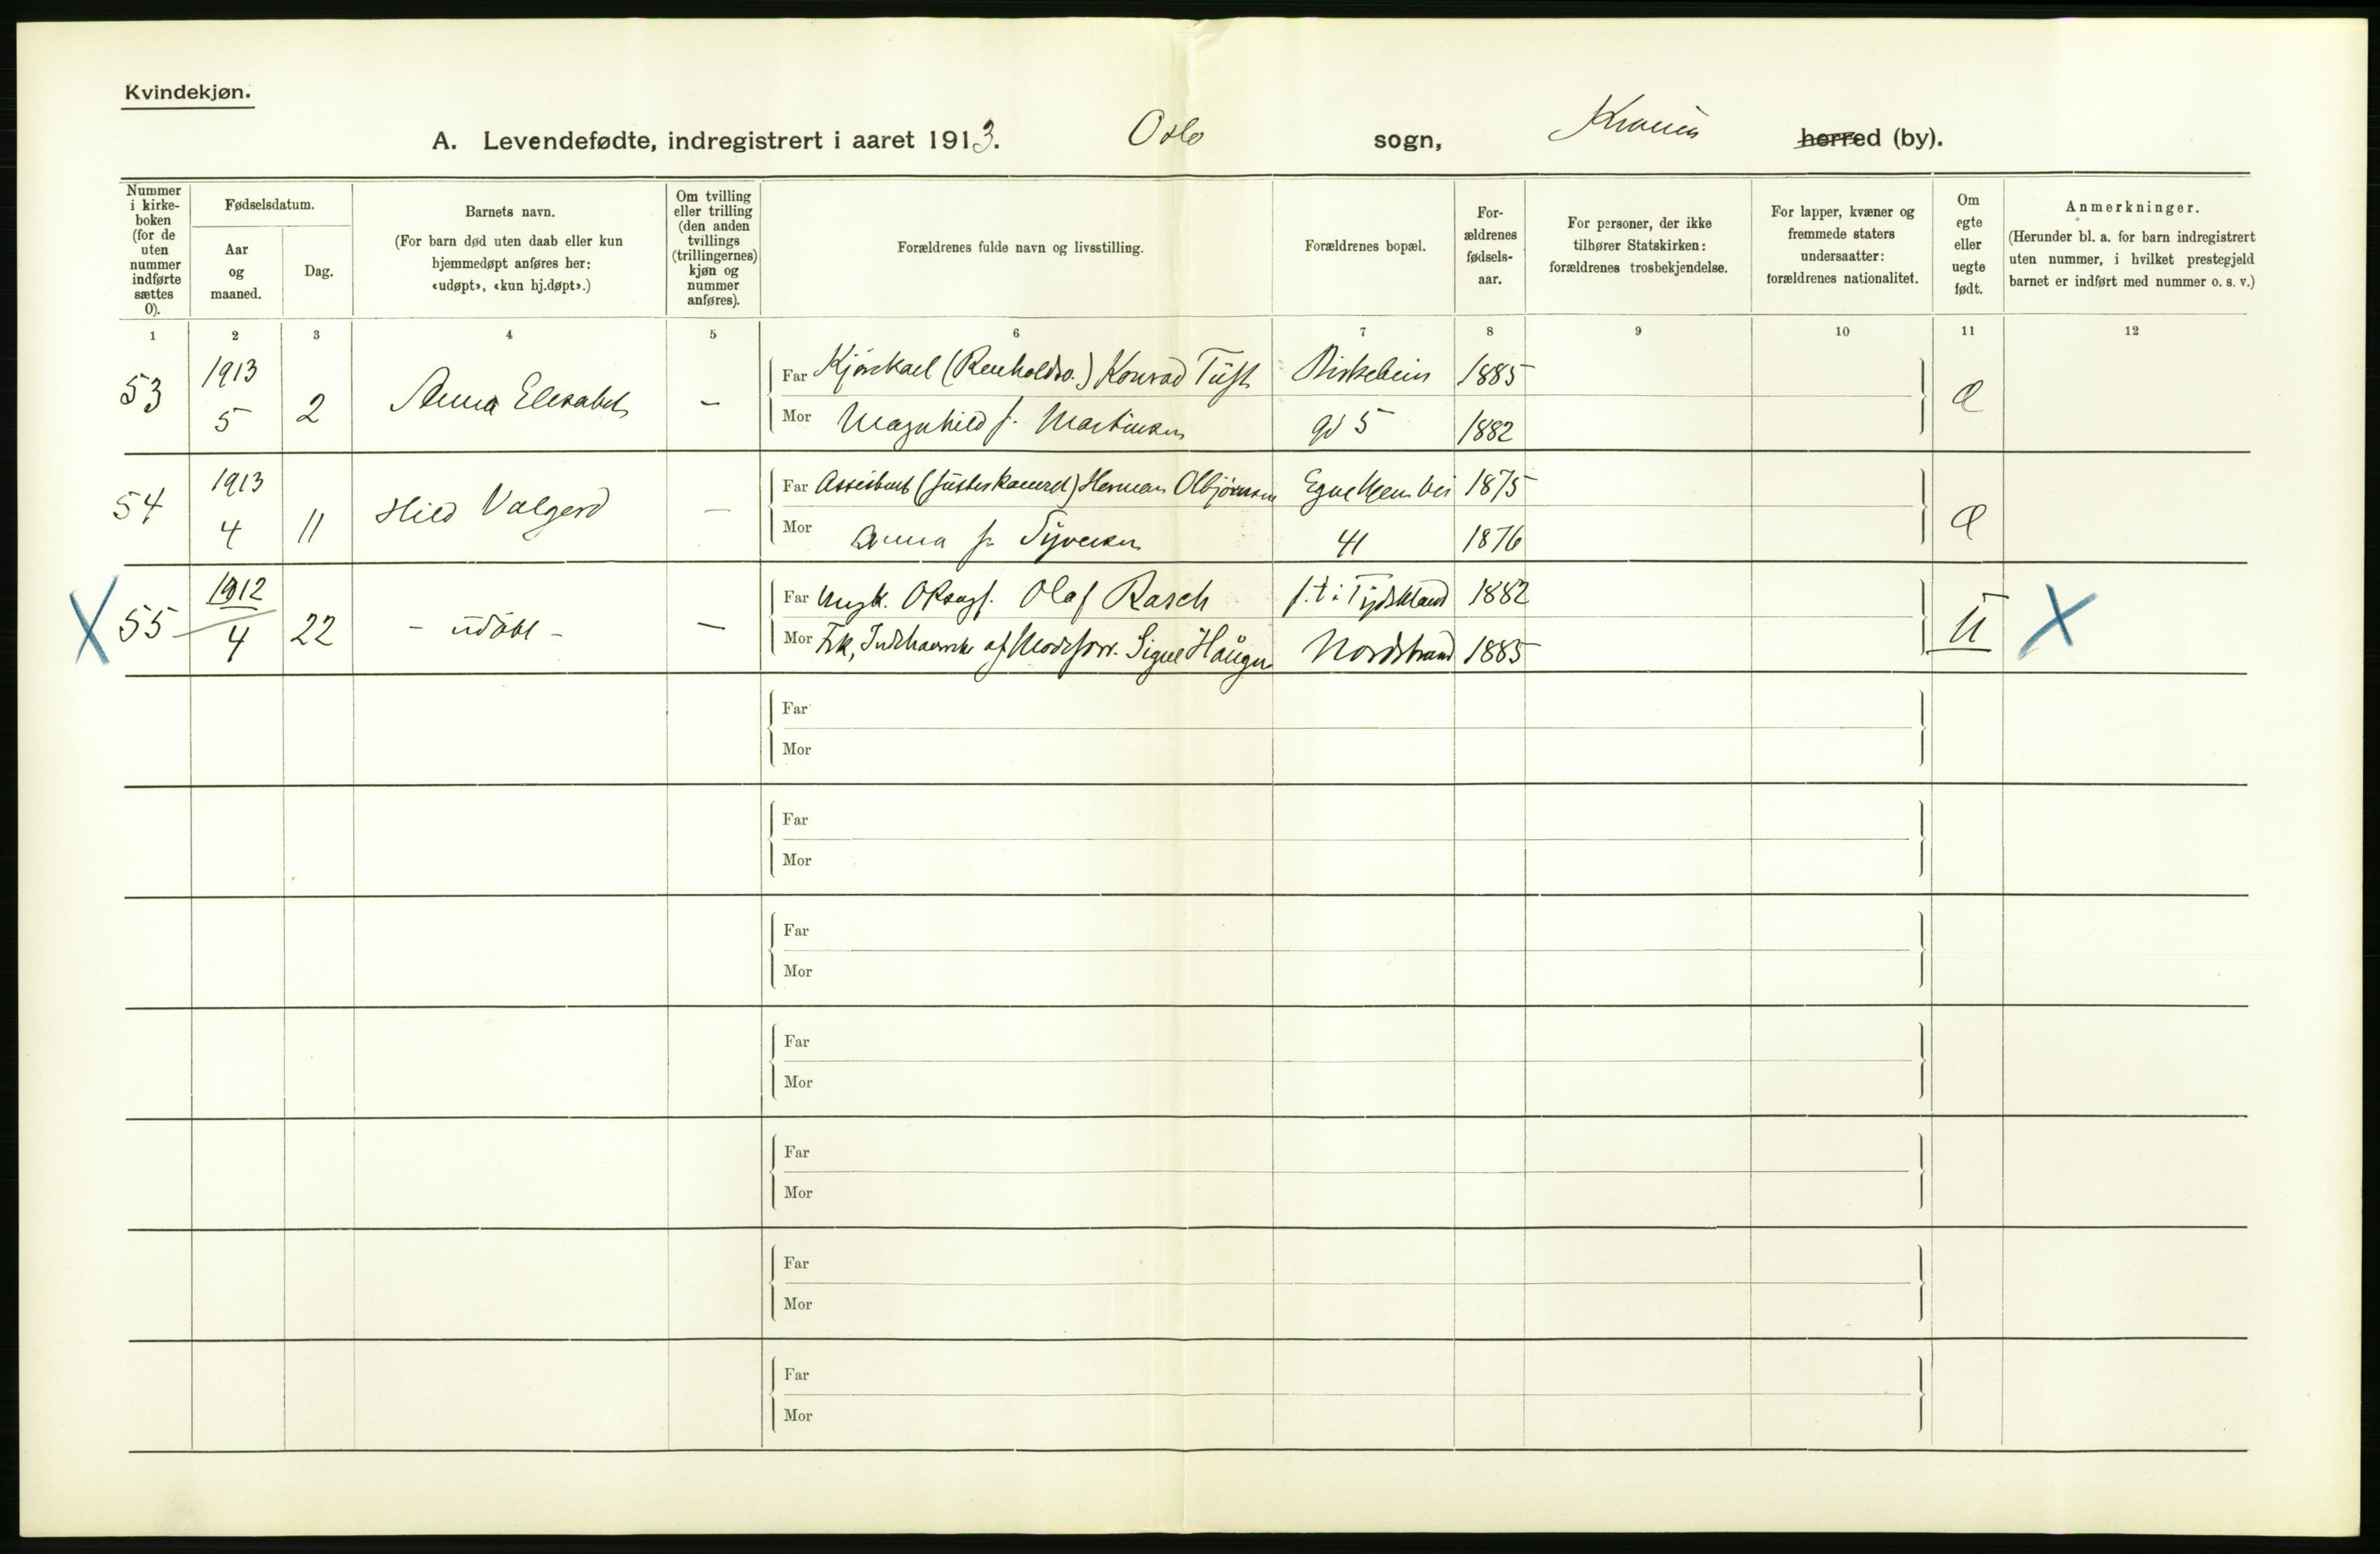 Kvindekjøn.
A. Levendefødte, indregistrert i aaret 1913. Oslo sogn, Krania herred (by).
Nummer i kirke-boken (for de uten nummer indførte sættes 0).
Fødselsdatum.
Aar og maaned.
Dag.
Barnets navn.
(For barn død uten daab eller kun hjemmedøpt anføres her: «udøpt», «kun hj.døpt».)
Om tvilling eller trilling (den anden tvillings (trillingernes) kjøn og nummer anføres).
Forældrenes fulde navn og livsstilling.
Forældrenes bopæl.
For-ældrenes fødsels-aar.
For personer, der ikke tilhører Statskirken: forældrenes trosbekjendelse.
For lapper, kvæner og fremmede staters undersaatter: forældrenes nationalitet.
Om egte eller uegte født.
Anmerkninger.
(Herunder bl. a. for barn indregistrert uten nummer, i hvilket prestegjeld barnet er indført med nummer o. s. v.)
1 2 3 4 5 6 7 8 9 10 11 12
53 1913 5 2 Anna Elisabet –
Far Kjørekael (Renholdsv.) Konrad Tuft Birkebein 1885
Mor Magnhild f. Martinsen gd 5 1882
54 1913 4 11 Hild Valgerd –
Far Assistent (Justerkamret) Herman Olbjørnsen Egnehjem vei 1875
Mor Anna f. Syversen 41 1876
X 55 1912 4 22 – udøbt – –
Far Ungk. Olaf Rasch f.t. i Tydskland 1882 U X
Mor Frk, af Signe Haugen Nordstrand 1885
Far
Mor
Far
Mor
Far
Mor
Far
Mor
Far
Mor
Far
Mor
Far
Mor